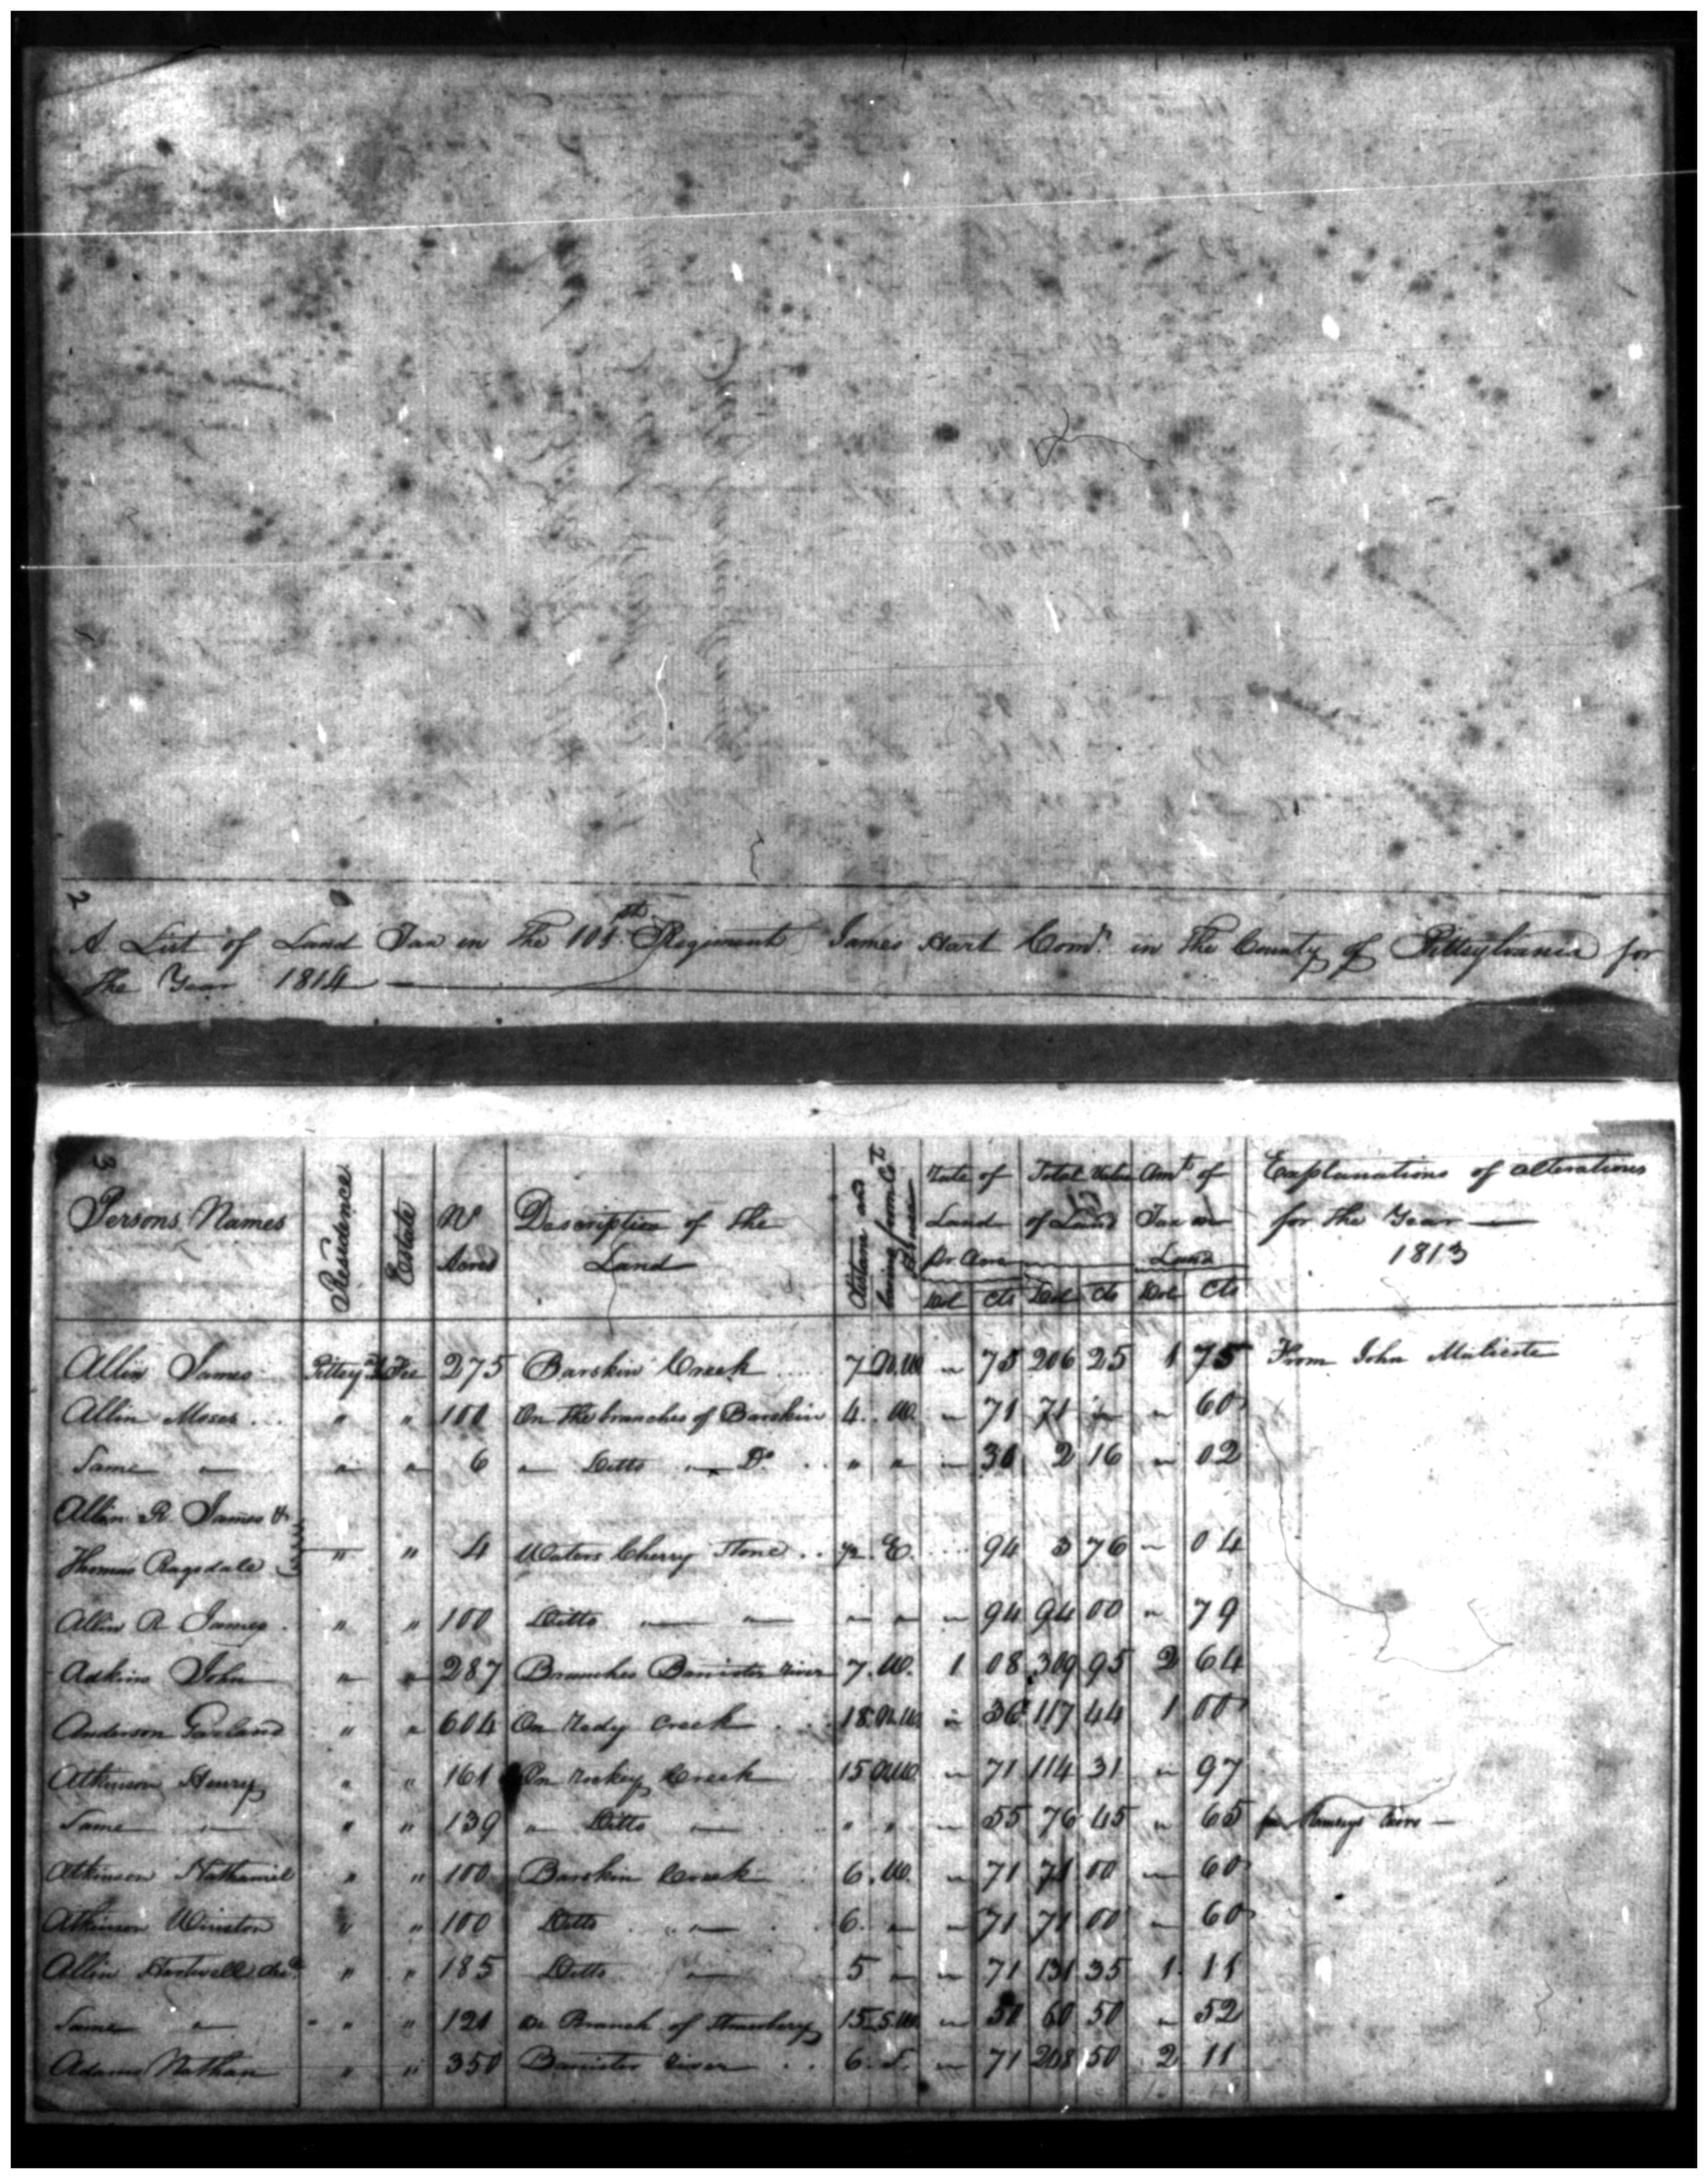 2
A List of Land Tax in the 101st Regiment James Hart Comr. in the County of Pittsylvania for
the Year 1814
3
Persons Names | Residence | Estate | No Acres | Description of the Land | Distance and bearing from Ct House | Rate of Land Pr Acre Dol Cts | Total Value of Land Dol Cts | Amt of Tax on Land Dol Cts | Explanations of alterations for the Year 1813
Allin James Fee 275 Barskin Creek 7 N.W. " 75 206 25 1 75 From John
Allin Moses " " 100 On the branches of Barskin 4 W. " 71 71 " " 60
Same " " " 6 " Ditto " Do " " " 36 2 16 " 02
Allin R. James &
Thomas Ragsdale " " 4 Waters Cherry Stone ½ E. 94 3 76 " 04
Allin R James " " 100 Ditto " " " " " 94 94 00 " 79
Adkins John " " 287 Branches Banister river 7 W. 1 08 309 95 2 64
Anderson Garland " " 604 On redy Creek 18 N.W. " 36 117 44 1 00
Atkinson Henry " " 161 On rockey Creek 15 N.W. " 71 114 31 " 97
Same " " " 139 " Ditto " " " " 55 76 45 " 65
Atkinson Nathaniel " " 100 Barskin Creek 6 W. " 71 71 00 " 60
Atkinson Winston " " 100 Ditto " 6 " " 71 71 00 " 60
Allin Hartwell decd " " 185 Ditto " 5 " " 71 131 35 1 11
Same " " " 121 Branch of Strawberry 15 S.W. " 50 60 50 " 52
Adams Nathan " " 350 Banister river 6 S. " 71 248 50 2 11